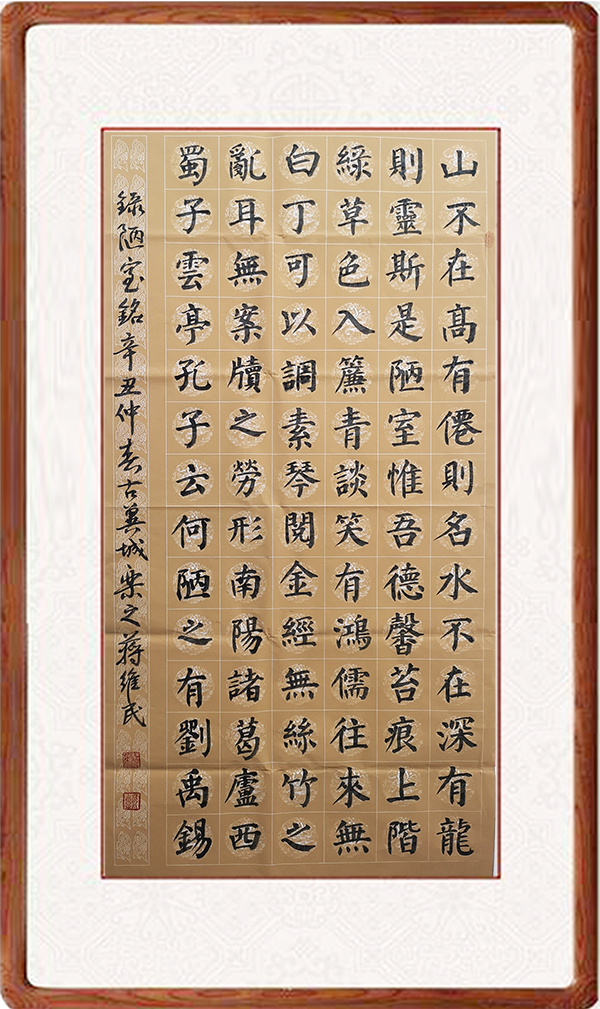 山不在髙有僊則名水不在深有龍
則靈斯是陋室惟吾德馨苔痕上階
綠草色入簾青談笑有鴻儒往來無
白丁可以調素琴閱金經無絲竹之
亂耳無案牘之勞形南陽諸葛廬西
蜀子雲亭孔子云何陋之有劉禹錫
録陋室銘辛丑仲春古翼城樂之蔣維民